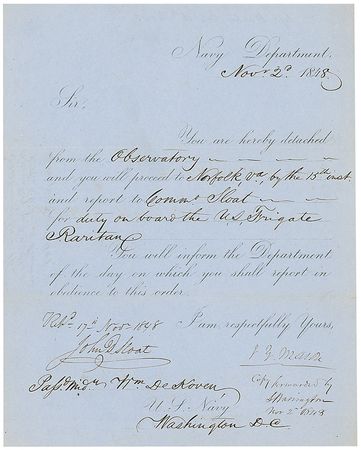 Navy Department.
Novr 2d. 1848
Sir,
You are hereby detached
from the Observatory
and you will proceed to Norfolk, Va, by the 15th inst
and report to Commo Sloat
for duty on board the U.S. Frigate
Raritan
You will inform the Department
of the day on which you shall report in
obedience to this order.
I am, respectfully Yours,
J Y Mason
Repd. 17th Novr 1848
John D Sloat
Passd Midn Wm DeKoven
U.S. Navy
Washington D.C.
Copy forwarded by
Warrington
Nov 2d 1848